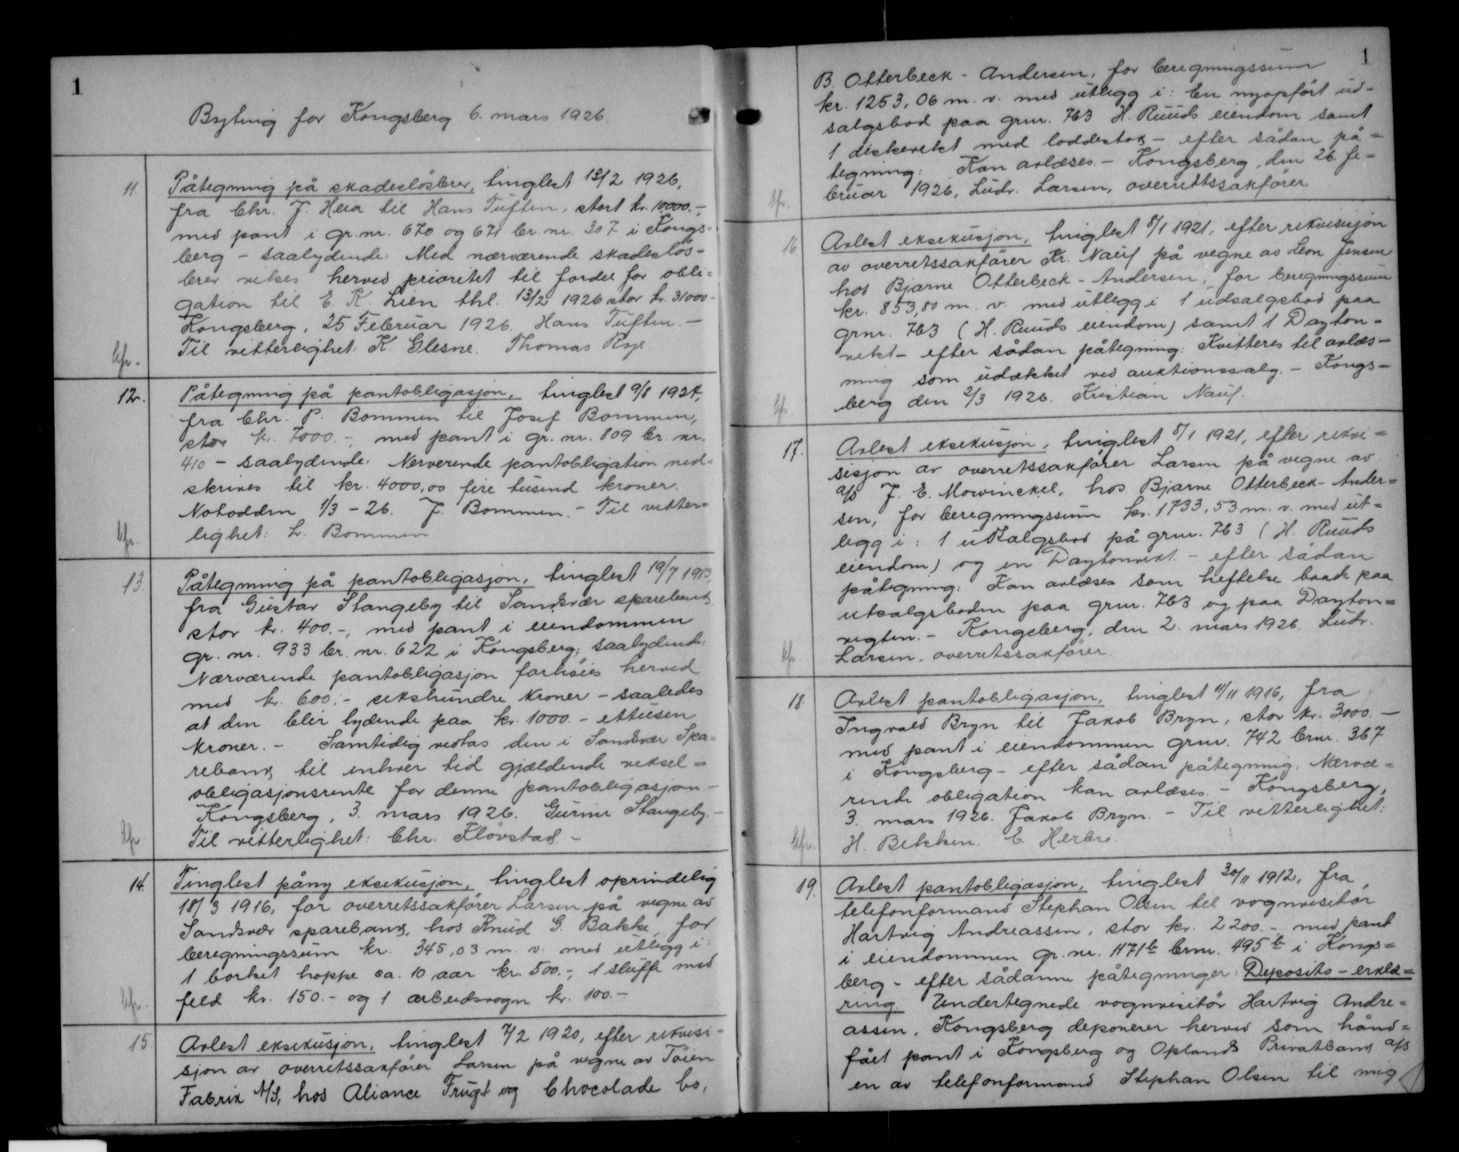 1
Byting for Kongsberg 6. mars 1926.
11. Påtegning på skadesløsbrev, tinglest 12/2 1926,
fra Chr. J. Heia til Hans Tuften, stort kr. 10000.-,
med pant i gr.nr. 670 og 671 br.nr. 307 i Kongs-
berg - saalydende: Med nærværende skadesløs-
brev vikes herved prioritet til fordel for obli-
gation til E. K. Lien thl. 13/2 1926 stor kr. 31000-
Kongsberg, 25 Februar 1926. Hans Tuften. -
Til vitterlighet: K. Glesne. Thomas Rye.
12. Påtegning på pantobligasjon, tinglest 9/8 1924,
fra Chr. P. Bommen til Josef Bommen,
stor kr. 7000.-, med pant i gr. nr. 809 br. nr.
410 - saalydende: Nerverende pantobligation ned-
skrives til kr. 4000,00 fire tusend kroner.
Notodden 1/3 - 26. J. Bommen. - Til vitter-
lighet: L. Bommen
13. Påtegning på pantobligasjon, tinglest 19/7 1913,
fra Gustav Stangeby til Sandsvær sparebank
stor kr. 400.-, med pant i eiendommen
gr. nr. 933 br. nr. 622 i Kongsberg; saalydende:
Nærværende pantobligasjon forhøies herved
med kr. 600.- sekshundre kroner - saaledes
at den blir lydende paa kr. 1000.- ettusen
kroner. - Samtidig vedtas den i Sandsvær Spa-
rebank til enhver tid gjældende veksel-
obligasjonsrente for denne pantobligasjon -
Kongsberg, 3. mars 1926. Gurine Stangeby. -
Til vitterlighet: Chr. Fløvstad. -
14. Tinglest påny eksekusjon, tinglest oprindelig
18/3 1916, for overrettssakfører Larsen på vegne av
Sandsvær sparebank, hos Knud G. Bakke, for
beregningssum kr. 345,03 m. v. med utlegg i:
1 borket hoppe ca. 10 aar kr. 500.-, 1 sluffe med
feld kr. 150.- og 1 arbeidsvogn kr. 100.-
15. Avlest eksekusjon, tinglest 7/2 1920, efter rekvisi-
sjon av overrettssakfører Larsen på vegne av Tøien
Fabrik A/S, hos Aliance Frugt og Chocolade Co,
1
B. Otterbeck - Andersen, for beregningssum
kr. 1253,06 m. v. med utlegg i: En nyopført ud-
salgsbod paa grnr. 763 H. Ruuds eiendom samt
1 diskevekt med loddestok - efter sådan på-
tegning: Kan avlæses. - Kongsberg, den 26. fe-
bruar 1926, Ludv. Larsen, overrettssakfører.
16 Avlest eksekusjon, tinglest 8/1 1921, efter rekvisisjon
av overrettssakfører Kr. Nauf på vegne av Leon Jensen
hos Bjarne Otterbeck - Andersen, for beregningssum
kr. 853,80 m. v. med utlegg i 1 udsalgsbod paa
grnr. 763 (H. Ruuds eiendom) samt 1 Dayton-
vekt - efter sådan påtegning: Kvitteres til avlæs-
ning som udækket ved auktionssalg. - Kongs-
berg den 2/3 1926. Kristian Nauf.
17. Avlest eksekusjon, tinglest 8/1 1921, efter rekvi-
sisjon av overrettssakfører Larsen på vegne av
a/s J. E. Mowinckel, hos Bjarne Otterbeck-Ander-
sen, for beregningssum kr. 1733,53 m. v. med ut-
legg i: 1 utsalgsbod på grnr. 763 (H. Ruuds
eiendom) og en Daytonvekt - efter sådan
påtegning: Kan avlæses som heftelse baade paa
utsalgsboden paa grnr. 763 og paa Dayton-
vegten. - Kongsberg, den 2. mars 1926. Ludv.
Larsen, overretssakfører.
18. Avlest pantobligasjon, tinglest 11/11 1916, fra
Ingvald Bryn til Jakob Bryn, stor kr. 3000. -
med pant i eiendommen grnr. 742 brnr. 367
i Kongsberg - efter sådan påtegning: Nærvæ-
rende obligation kan avlæses. - Kongsberg,
3. mars 1926. Jakob Bryn. - Til vitterlighet:
H. Bekken. E. Herbre.
19. Avlest pantobligasjon, tinglest 30/11 1912, fra
telefonformand Stephan Olsen til vognvisitør
Hartvig Andreassen, stor kr. 2200.- med pant
i eiendommen gr. nr. 1171b brnr. 495b i Kongs-
berg - efter sådanne påtegninger: Deposito - erklæ-
ring Undertegnede vognvisitør Hartvig Andre-
assen, Kongsberg deponerer herved som hånd-
fået pant i Kongsberg og Oplands Privatbank a/s
en av telefonformand Stephan Olsen til mig